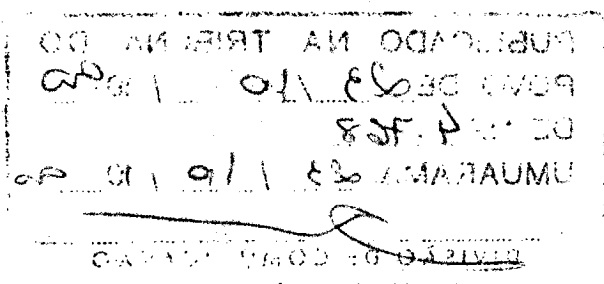 PUBLICADO NA TRIBUNA DO
POVO DE 23 / 10 / 19 90
DE Nº 4.768
UMUARAMA 23 / 10 / 19 90
DIVISÃO DE COMUNICAÇÃO